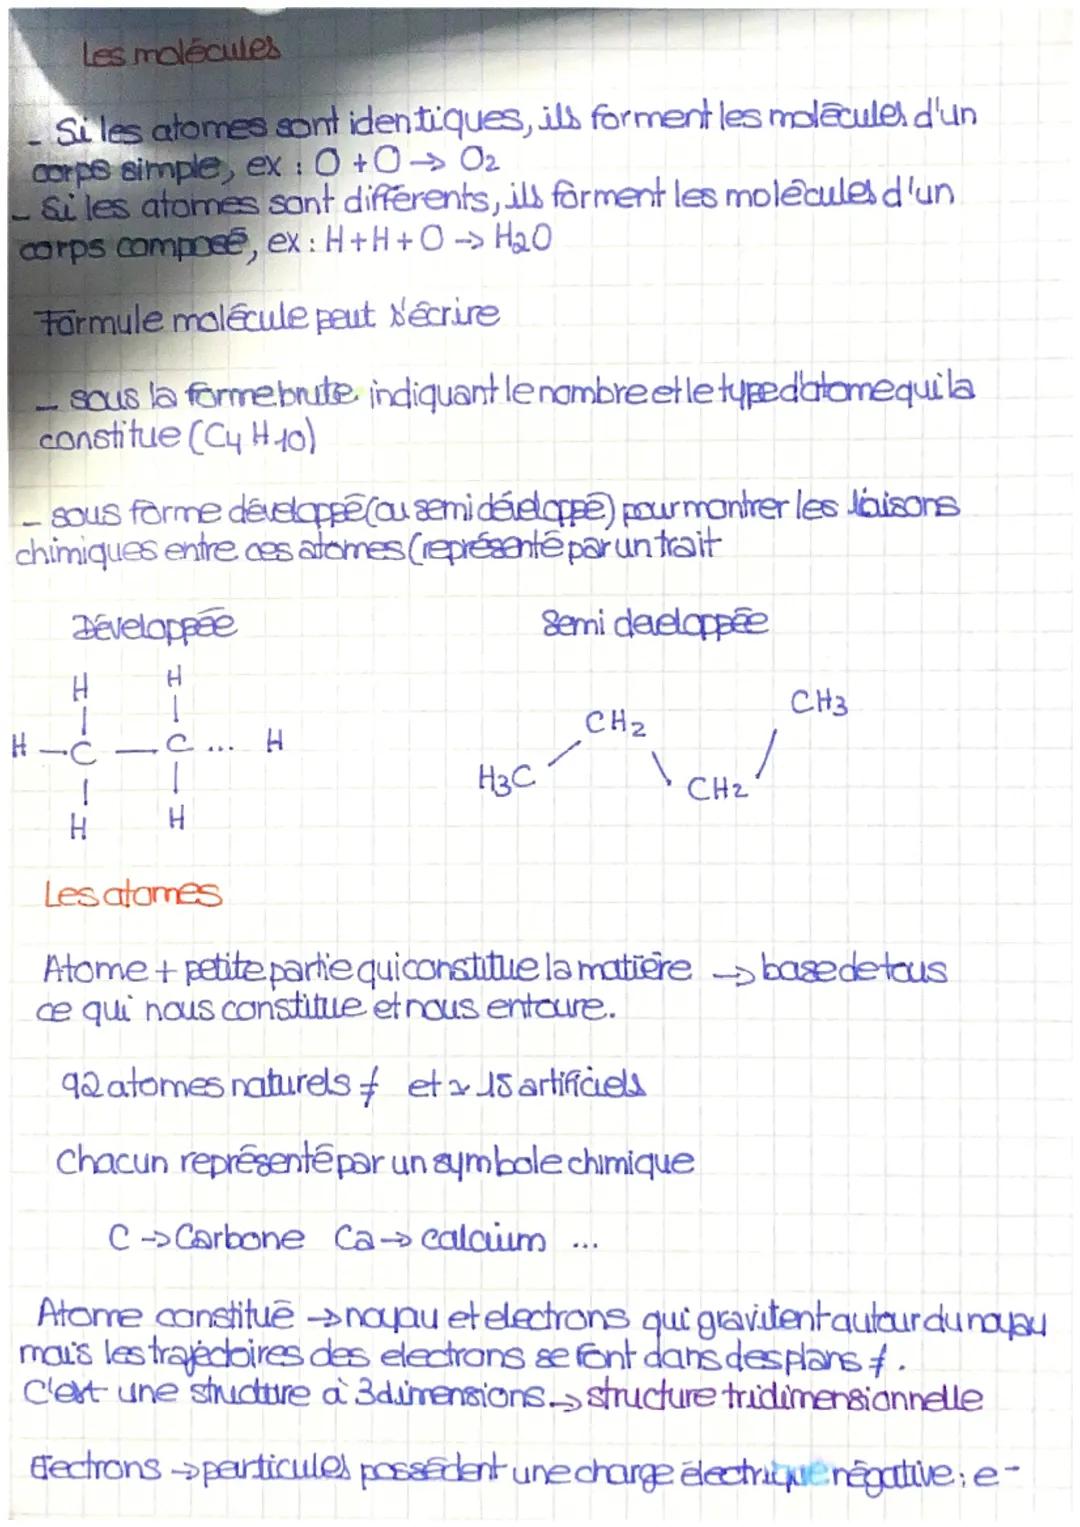 Les molécules
- Si les atomes sont identiques, ils forment les molécules d'un
corps simple, ex : O + O → O2
- Si les atomes sont différents, ils forment les molécules d'un
corps composé, ex : H + H + O → H2O
Formule molécule peut s'écrire
- sous la forme brute indiquant le nombre et le type d'atome qui la
constitue (C4 H10)
- sous forme développé (ou semi développé) pour montrer les liaisons
chimiques entre ces atomes (représenté par un trait
Développée Semi developpée
H H
H - C - C ... H
H H
CH3
CH2
H3C
CH2
Les atomes
Atome + petite partie qui constitue la matière → base de tous
ce qui nous constitue et nous entoure.
92 atomes naturels ≠ et ≈ 15 artificiels
Chacun représenté par un symbole chimique
C → Carbone Ca → calcium ...
Atome constitué → noyau et electrons qui gravitent autour du noyau
mais les trajectoires des electrons se font dans des plans ≠.
C'est une structure à 3 dimensions → structure tridimensionnelle
Electrons → particules possédent une charge électrique négative ; e-